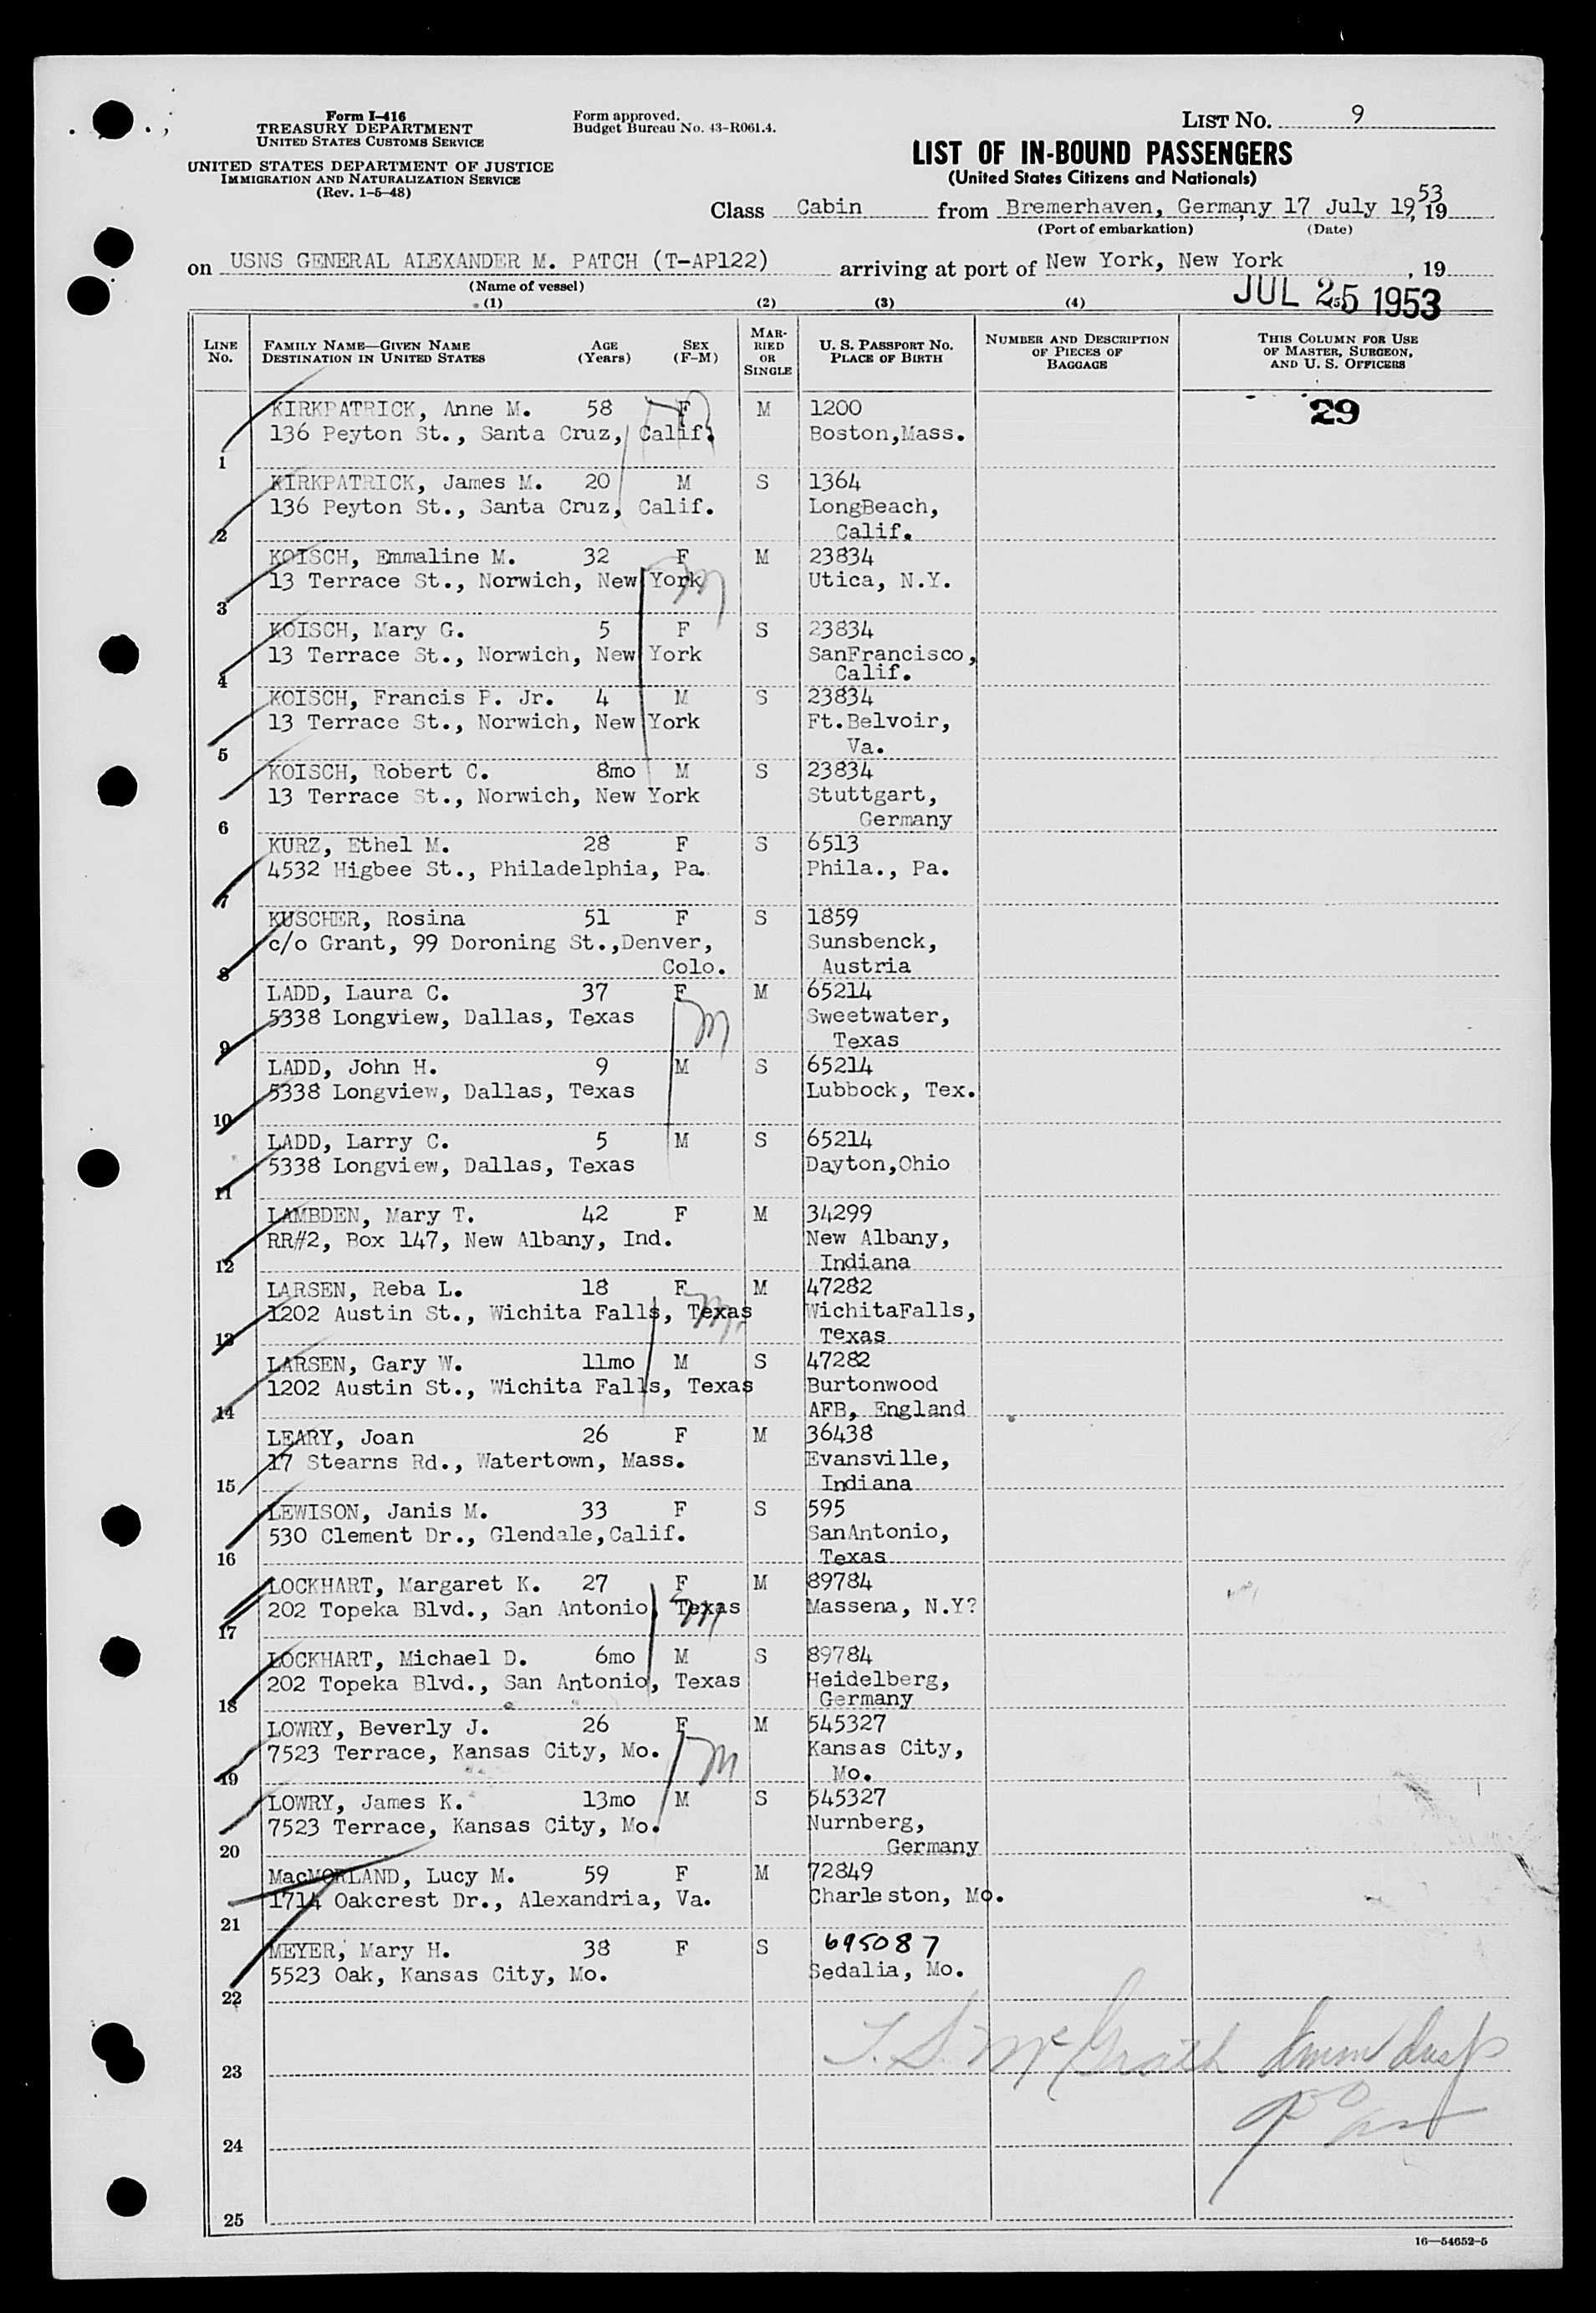 Form I-416
TREASURY DEPARTMENT
UNITED STATES CUSTOMS SERVICE
UNITED STATES DEPARTMENT OF JUSTICE
IMMIGRATION AND NATURALIZATION SERVICE
(Rev. 1-5-48)
Form approved.
Budget Bureau No. 43-R061.4.
LIST No. 9
LIST OF IN-BOUND PASSENGERS
(United States Citizens and Nationals)
Class Cabin from Bremerhaven, Germany 17 July 1953, 19
(Port of embarkation) (Date)
on USNS GENERAL ALEXANDER M. PATCH (T-AP122) arriving at port of New York, New York, 19
(Name of vessel)
JUL 25 1953
(1) (2) (3) (4) (5)
LINE No. FAMILY NAME—GIVEN NAME DESTINATION IN UNITED STATES AGE (Years) SEX (F-M) MARRIED OR SINGLE U. S. PASSPORT No. PLACE OF BIRTH NUMBER AND DESCRIPTION OF PIECES OF BAGGAGE THIS COLUMN FOR USE OF MASTER, SURGEON, AND U. S. OFFICERS
KIRKPATRICK, Anne M. 58 F M 1200 29
136 Peyton St., Santa Cruz, Calif. Boston,Mass.
1
KIRKPATRICK, James M. 20 M S 1364
136 Peyton St., Santa Cruz, Calif. LongBeach,
2 Calif.
KOISCH, Emmaline M. 32 F M 23834
13 Terrace St., Norwich, New York Utica, N.Y.
3
KOISCH, Mary G. 5 F S 23834
13 Terrace St., Norwich, New York SanFrancisco,
4 Calif.
KOISCH, Francis P. Jr. 4 M S 23834
13 Terrace St., Norwich, New York Ft.Belvoir,
5 Va.
KOISCH, Robert C. 8mo M S 23834
13 Terrace St., Norwich, New York Stuttgart,
6 Germany
KURZ, Ethel M. 28 F S 6513
4532 Higbee St., Philadelphia, Pa. Phila., Pa.
7
KUSCHER, Rosina 51 F S 1859
c/o Grant, 99 Doroning St.,Denver, Sunsbenck,
8 Colo. Austria
LADD, Laura C. 37 F M 65214
5338 Longview, Dallas, Texas Sweetwater,
9 Texas
LADD, John H. 9 M S 65214
5338 Longview, Dallas, Texas Lubbock, Tex.
10
LADD, Larry C. 5 M S 65214
5338 Longview, Dallas, Texas Dayton,Ohio
11
LAMBDEN, Mary T. 42 F M 34299
RR#2, Box 147, New Albany, Ind. New Albany,
12 Indiana
LARSEN, Reba L. 18 F M 47282
1202 Austin St., Wichita Falls, Texas WichitaFalls,
13 Texas
LARSEN, Gary W. 11mo M S 47282
1202 Austin St., Wichita Falls, Texas Burtonwood
14 AFB, England
LEARY, Joan 26 F M 36438
17 Stearns Rd., Watertown, Mass. Evansville,
15 Indiana
LEWISON, Janis M. 33 F S 595
530 Clement Dr., Glendale,Calif. SanAntonio,
16 Texas
LOCKHART, Margaret K. 27 F M 89784
202 Topeka Blvd., San Antonio, Texas Massena, N.Y?
17
LOCKHART, Michael D. 6mo M S 89784
202 Topeka Blvd., San Antonio, Texas Heidelberg,
18 Germany
LOWRY, Beverly J. 26 F M 545327
7523 Terrace, Kansas City, Mo. Kansas City,
19 Mo.
LOWRY, James K. 13mo M S 545327
7523 Terrace, Kansas City, Mo. Nurnberg,
20 Germany
MacMORLAND, Lucy M. 59 F M 72849
1714 Oakcrest Dr., Alexandria, Va. Charleston, Mo.
21
MEYER, Mary H. 38 F S 695087
5523 Oak, Kansas City, Mo. Sedalia, Mo.
22
T. S. McGrath
23
24
25
16—54652-5